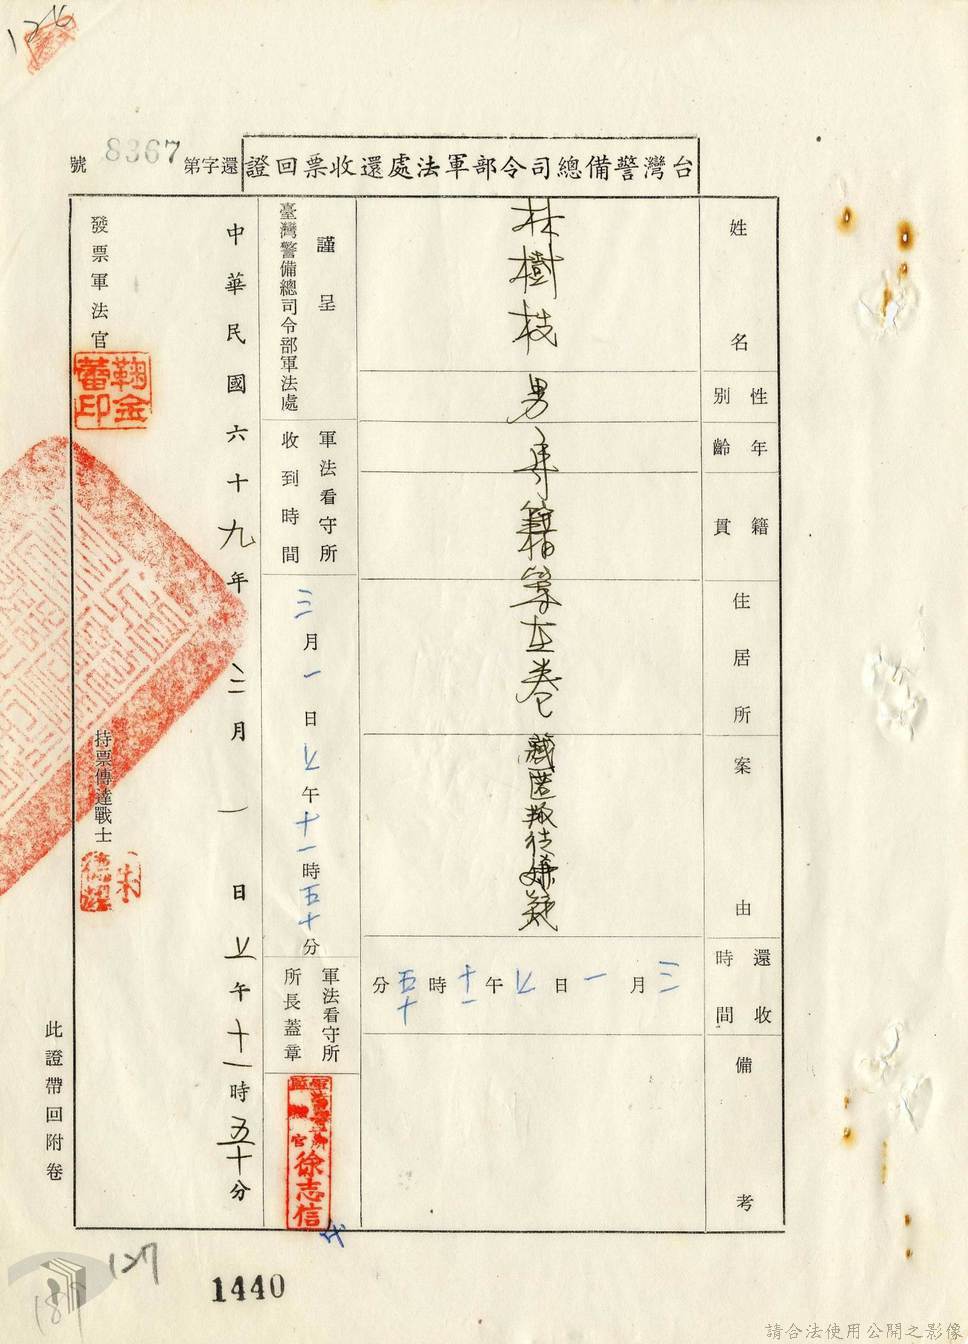 126
台灣警備總司令部軍法處還收票回證
還字第8367號
姓名
林樹枝
性別
男
年齡
籍貫
住居所
年籍等在卷
案由
藏匿叛徒嫌疑
還收時間
三月一日上午十一時五十分
備考
謹呈
臺灣警備總司令部軍法處
軍法看守所
收到時間
三月一日上午十一時五十分
軍法看守所
所長蓋章
徐志信
代
中華民國六十九年三月一日上午十一時五十分
發票軍法官
鞠金蕾印
持票傳達戰士
朱德
此證帶回附卷
127
1440
請合法使用公開之影像